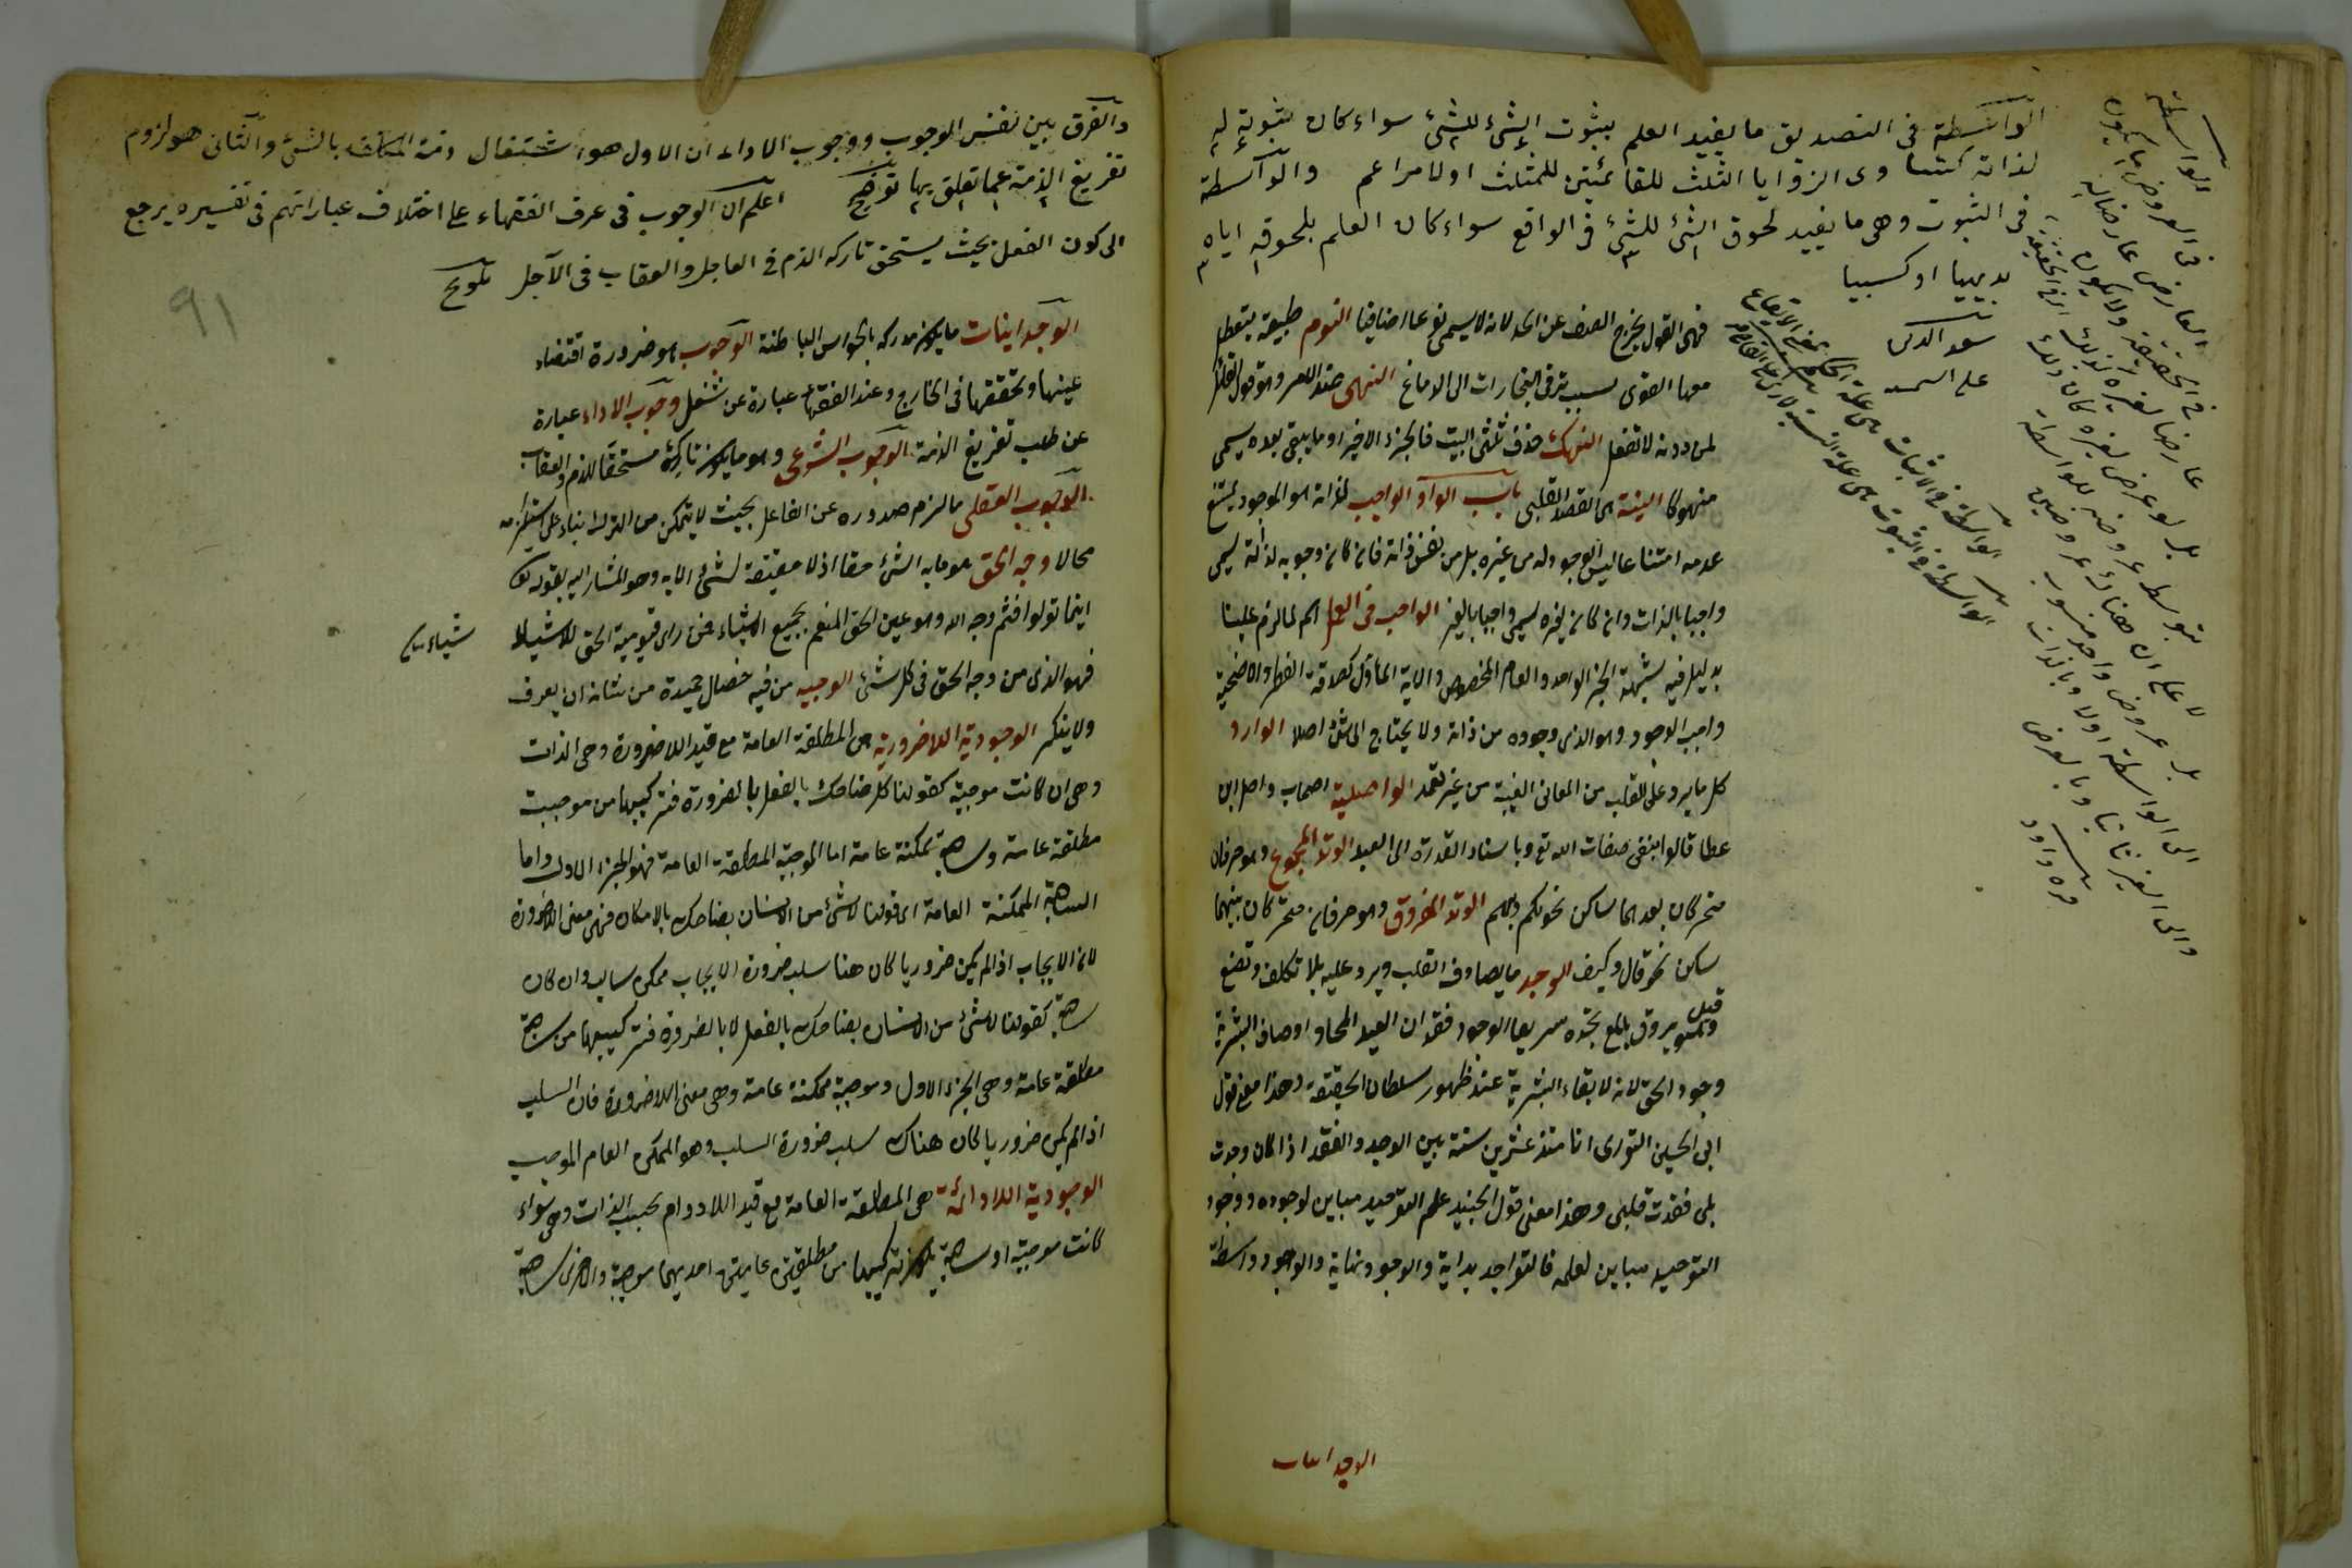 الواسطة فى التصديق ما يفيد العلم بثبوت الشئ للشئ سواء كان ثبوته له
لذاته كتساوى الزوايا الثلث للقائمتين للمثلث اولا مر اعم والواسطة
فى الثبوت وهى ما يفيد لحوق الشئ للشئ فى الواقع سواء كان العلم بلحوقه اياه
بديهيا او كسبيا
سعد الدين
على الشمسية
الواسطة
فى العروض ما يكون
العارض عارضا له
فى الحقيقة ولا يكون
عارضا لغيره كذلك
بل لو عرض لغيره كان ذلك
بتوسط عروضه للواسطة
لا على ان هناك عروضين
بل عروض واحد منسوب
الى الواسطة اولا وبالذات
والى الغير ثانيا وبالعرض
قره داود
الواسطة فى الاثبات هى علة الحكم
الواسطة فى الثبوت هى علة النسبة
فهى القول يخرج الصدف عن الحد لانه لا يسمى نوعا اضافيا النوم طبيعة يتعطل
معها القوى بسبب ترقى البخارات الى الدماغ النهى ضد الامر وهو قول القائل
لمن دونه لا تفعل النهك حذف ثلثى البيت فالجزء الاخير او ما يبقى بعده يسمى
منهوكا النية هى القصد القلبى باب الواو الواجب لذاته هو الموجود يمتنع
عدمه امتناعا ليس الوجود له من غيره بل من نفس ذاته فان كان وجوبه لذاته يسمى
واجبا بالذات وان كان لغيره يسمى واجبا بالغير الواجب فى العمل اسم لما لزم علينا
بدليل فيه شبهة كخبر الواحد والعام المخصوص والاية المأول كصدقة الفطر والاضحية
واجب الوجود وهو الذى وجوده من ذاته ولا يحتاج الى شئ اصلا الوارد
كل ما يرد على القلب من المعانى الغيبة من غير تعمد الواصلية اصحاب واصل ابن
عطا قالوا بنفى صفات الله تع وباسناد القدرة الى العبد الوتد المجموع وهو حرفان
متحركان بعدهما ساكن نحو لكم وبكم الوتد المفروق وهو حرفان متحركان بينهما
ساكن نحو قال وكيف الوجد ما يصادف القلب ويرد عليه بلا تكلف وتصنع
وقيل هو بروق تلمع ثم تخمد سريعا الوجود فقدان العبد المحاو اوصاف البشرية
وجود الحق لانه لا بقاء البشرية عند ظهور سلطان الحقيقة وهذا معنى قول
ابى الحسين النورى انا منذ عشرين سنة بين الوجد والفقد اذا كان وجدت
بلى فقدت قلبى وهذا معنى قول الجنيد علم التوحيد مباين لوجوده ووجود
التوحيد مباين لعلمه فالتواجد بداية والوجود نهاية والوجد واسطة
الوجدانيات
والفرق بين نفس الوجوب ووجوب الاداء ان الاول هو اشتغال ذمة المكلف بالشئ والثانى هو لزوم
تفريغ الذمة عما تعلق بها توضيح اعلم ان الوجوب فى عرف الفقهاء على اختلاف عباراتهم فى تفسيره يرجع
الى كون الفعل بحيث يستحق تاركه الذم فى العاجل والعقاب فى الآجل تلويح
91
الوجدانيات ما يكون مدركه بالحواس الباطنة الوجوب هو ضرورة اقتضاء
عينها وتحققها فى الخارج وعند الفقهاء عبارة عن شغل وجوب الاداء عبارة
عن طلب تفريغ الذمة الوجوب الشرعى وهو ما يكون تاركه مستحقا للذم والعقاب
الوجوب العقلى ما لزم صدوره عن الفاعل بحيث لا يتمكن من الترك بناء على استلزامه
محالا وجه الحق هو ما به الشئ حقا اذ لا حقيقة لشئ الا به وهو المشار اليه بقوله تع
اينما تولوا فثم وجه الله وهو عين الحق المقيم بجميع الاشياء فمن راى قيومية الحق للاشياء
شياء
فهو الذى من وجه الحق فى كل شئ الوجيه من فيه خصال حميدة من شانه ان يعرف
ولا ينكر الوجودية اللاضرورية هى المطلقة العامة مع قيد اللاضرورة وهى الذات
وهى ان كانت موجبة كقولنا كل ضاحك بالفعل بالضرورة فتركيبها من موجبة
مطلقة عامة وسالبة ممكنة عامة اما الموجبة المطلقة العامة فهو الجزء الاول واما
السالبة الممكنة العامة اى قولنا لا شئ من الانسان بضاحك بالامكان فهى معنى اللاضرورة
لان الايجاب اذا لم يكن ضروريا كان هنا سلب ضرورة الايجاب ممكن سالب وان كان
سالبة كقولنا لا شئ من الانسان بضاحك بالفعل لا بالضرورة فتركيبها من سالبة
مطلقة عامة وهى الجزء الاول وموجبة ممكنة عامة وهى معنى اللاضرورة فان السلب
اذا لم يكن ضروريا لكان هناك سلب ضرورة السلب وهو الممكن العام الموجب
الوجودية اللادائمة هى المطلقة العامة مع قيد اللادوام بحسب الذات وهى سواء
كانت موجبة او سالبة يكون تركيبها من مطلقتين عامتين احديهما موجبة والاخرى سالبة